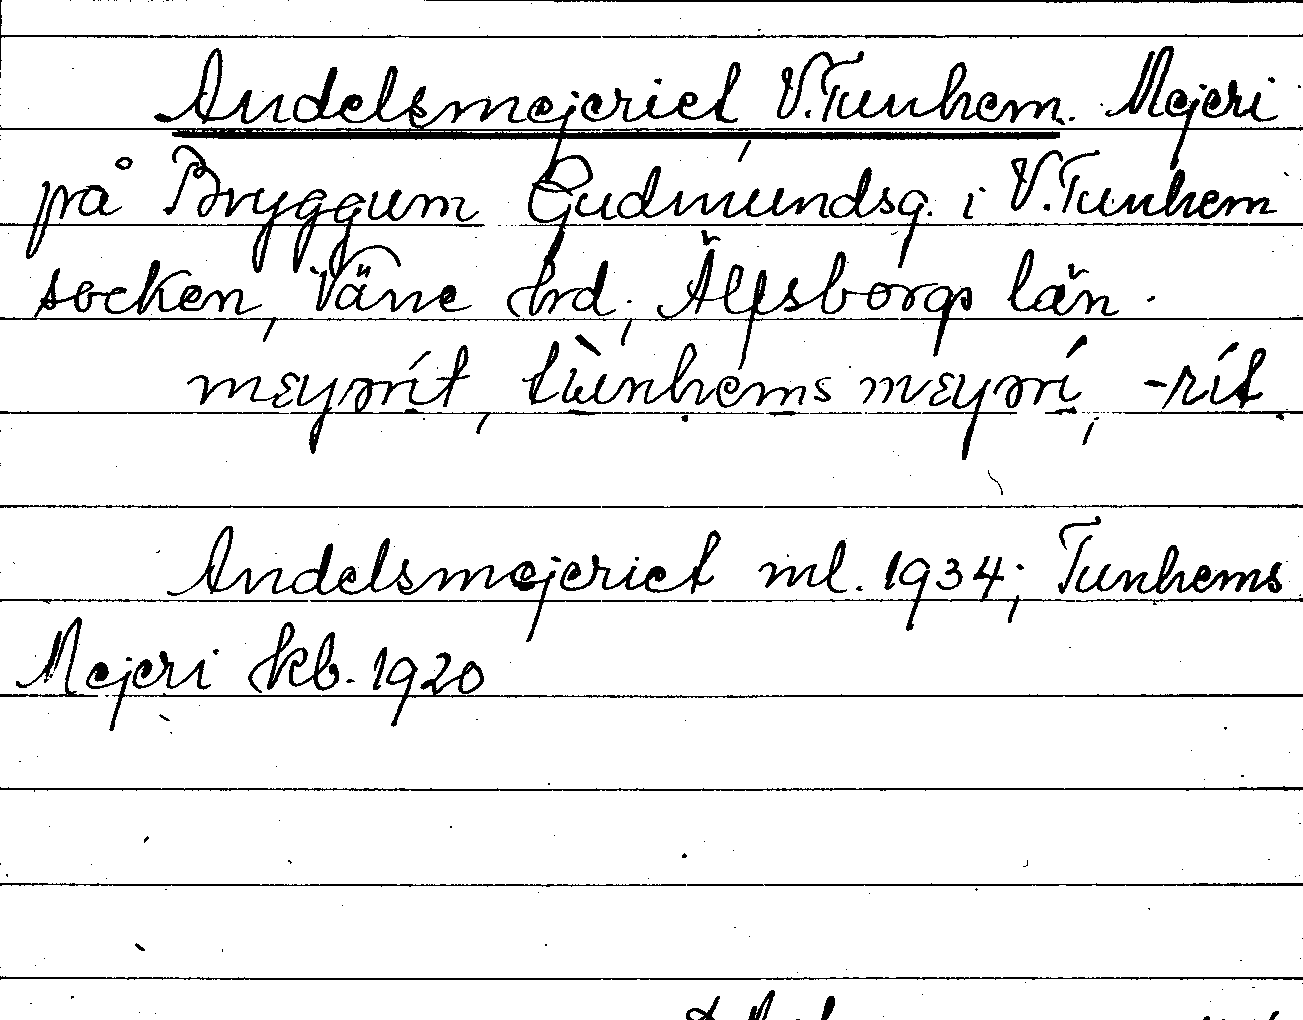 Andelsmejeriet, V. Tunhem. Mejeri
på Bryggum Gudmundsg. i V. Tunhem
socken, Väne hd, Älfsborgs län.
mɛyərít, tùnhems mɛyərí, -rít.
Andelsmejeriet ml. 1934; Tunhems
Mejeri kb. 1920